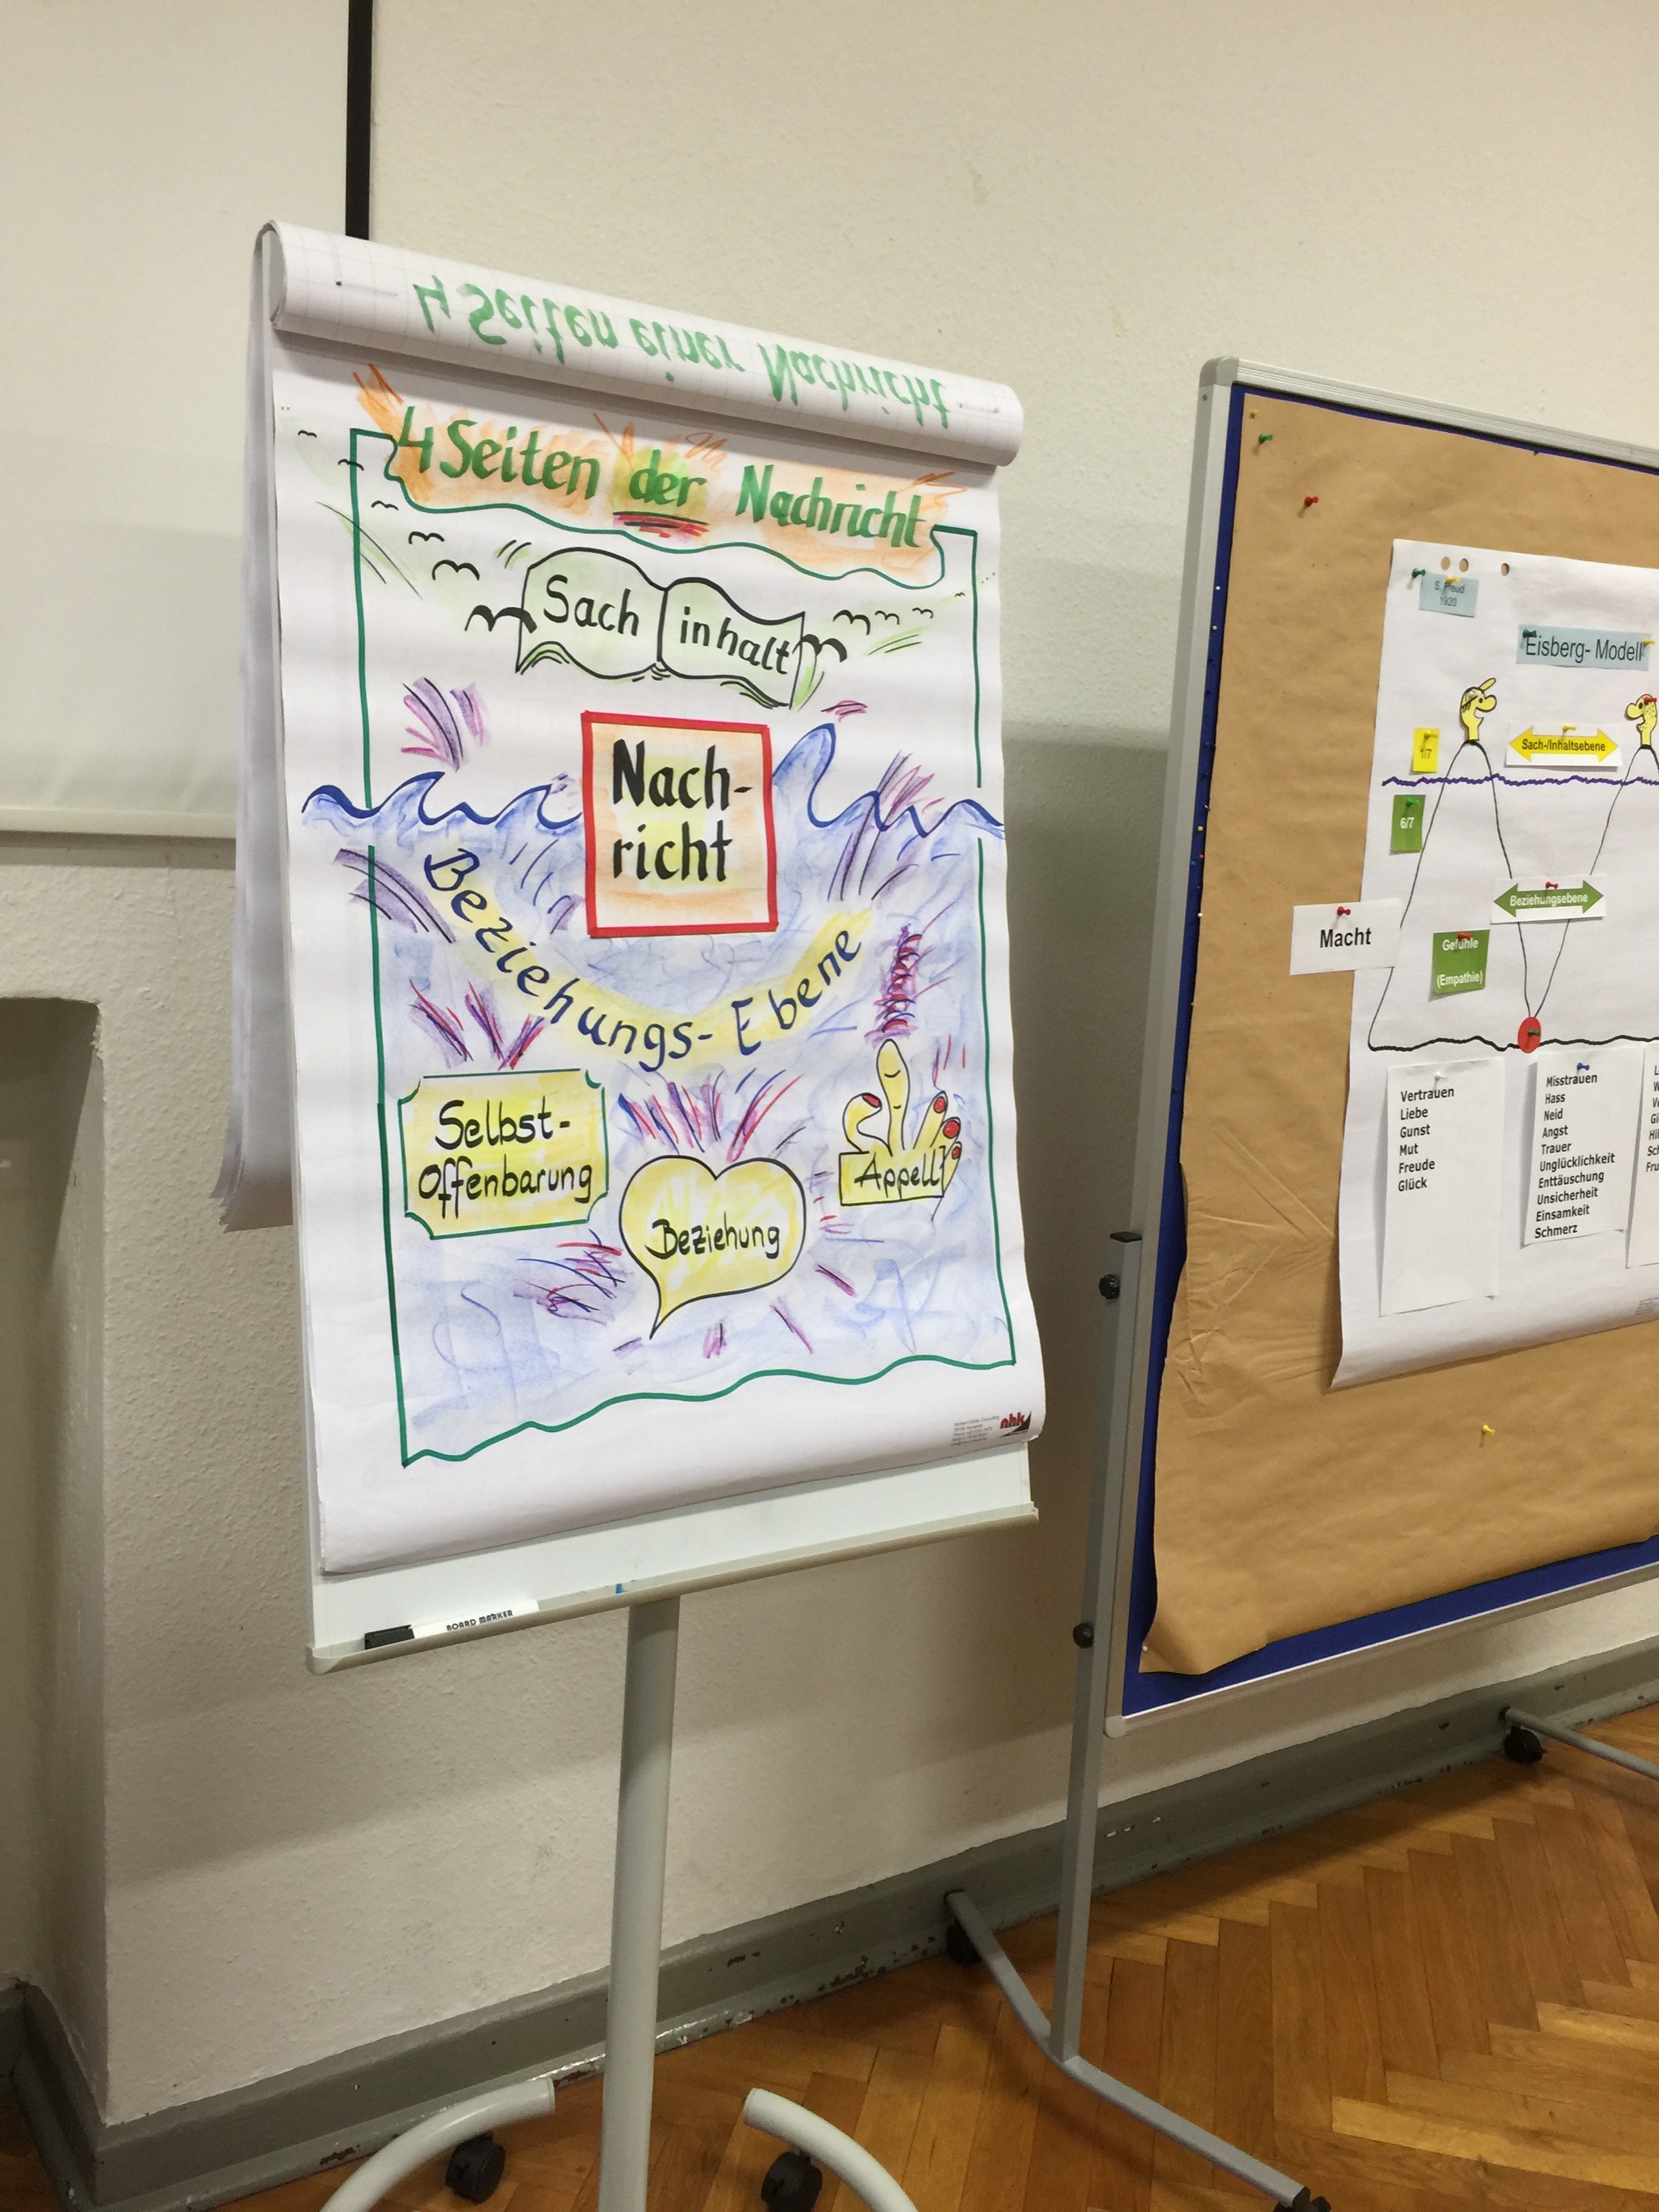 4 Seiten einer Nachricht
4 Seiten der Nachricht
Sach inhalt
Nach-
richt
Beziehungs-Ebene
Selbst-
Offenbarung
Beziehung
Appell
nhk
BOARD MARKER
S. Freud
1920
Eisberg- Modell
1/7
Sach-/Inhaltsebene
6/7
Beziehungsebene
Macht
Gefühle
(Empathie)
Vertrauen
Liebe
Gunst
Mut
Freude
Glück
Misstrauen
Hass
Neid
Angst
Trauer
Unglücklichkeit
Enttäuschung
Unsicherheit
Einsamkeit
Schmerz